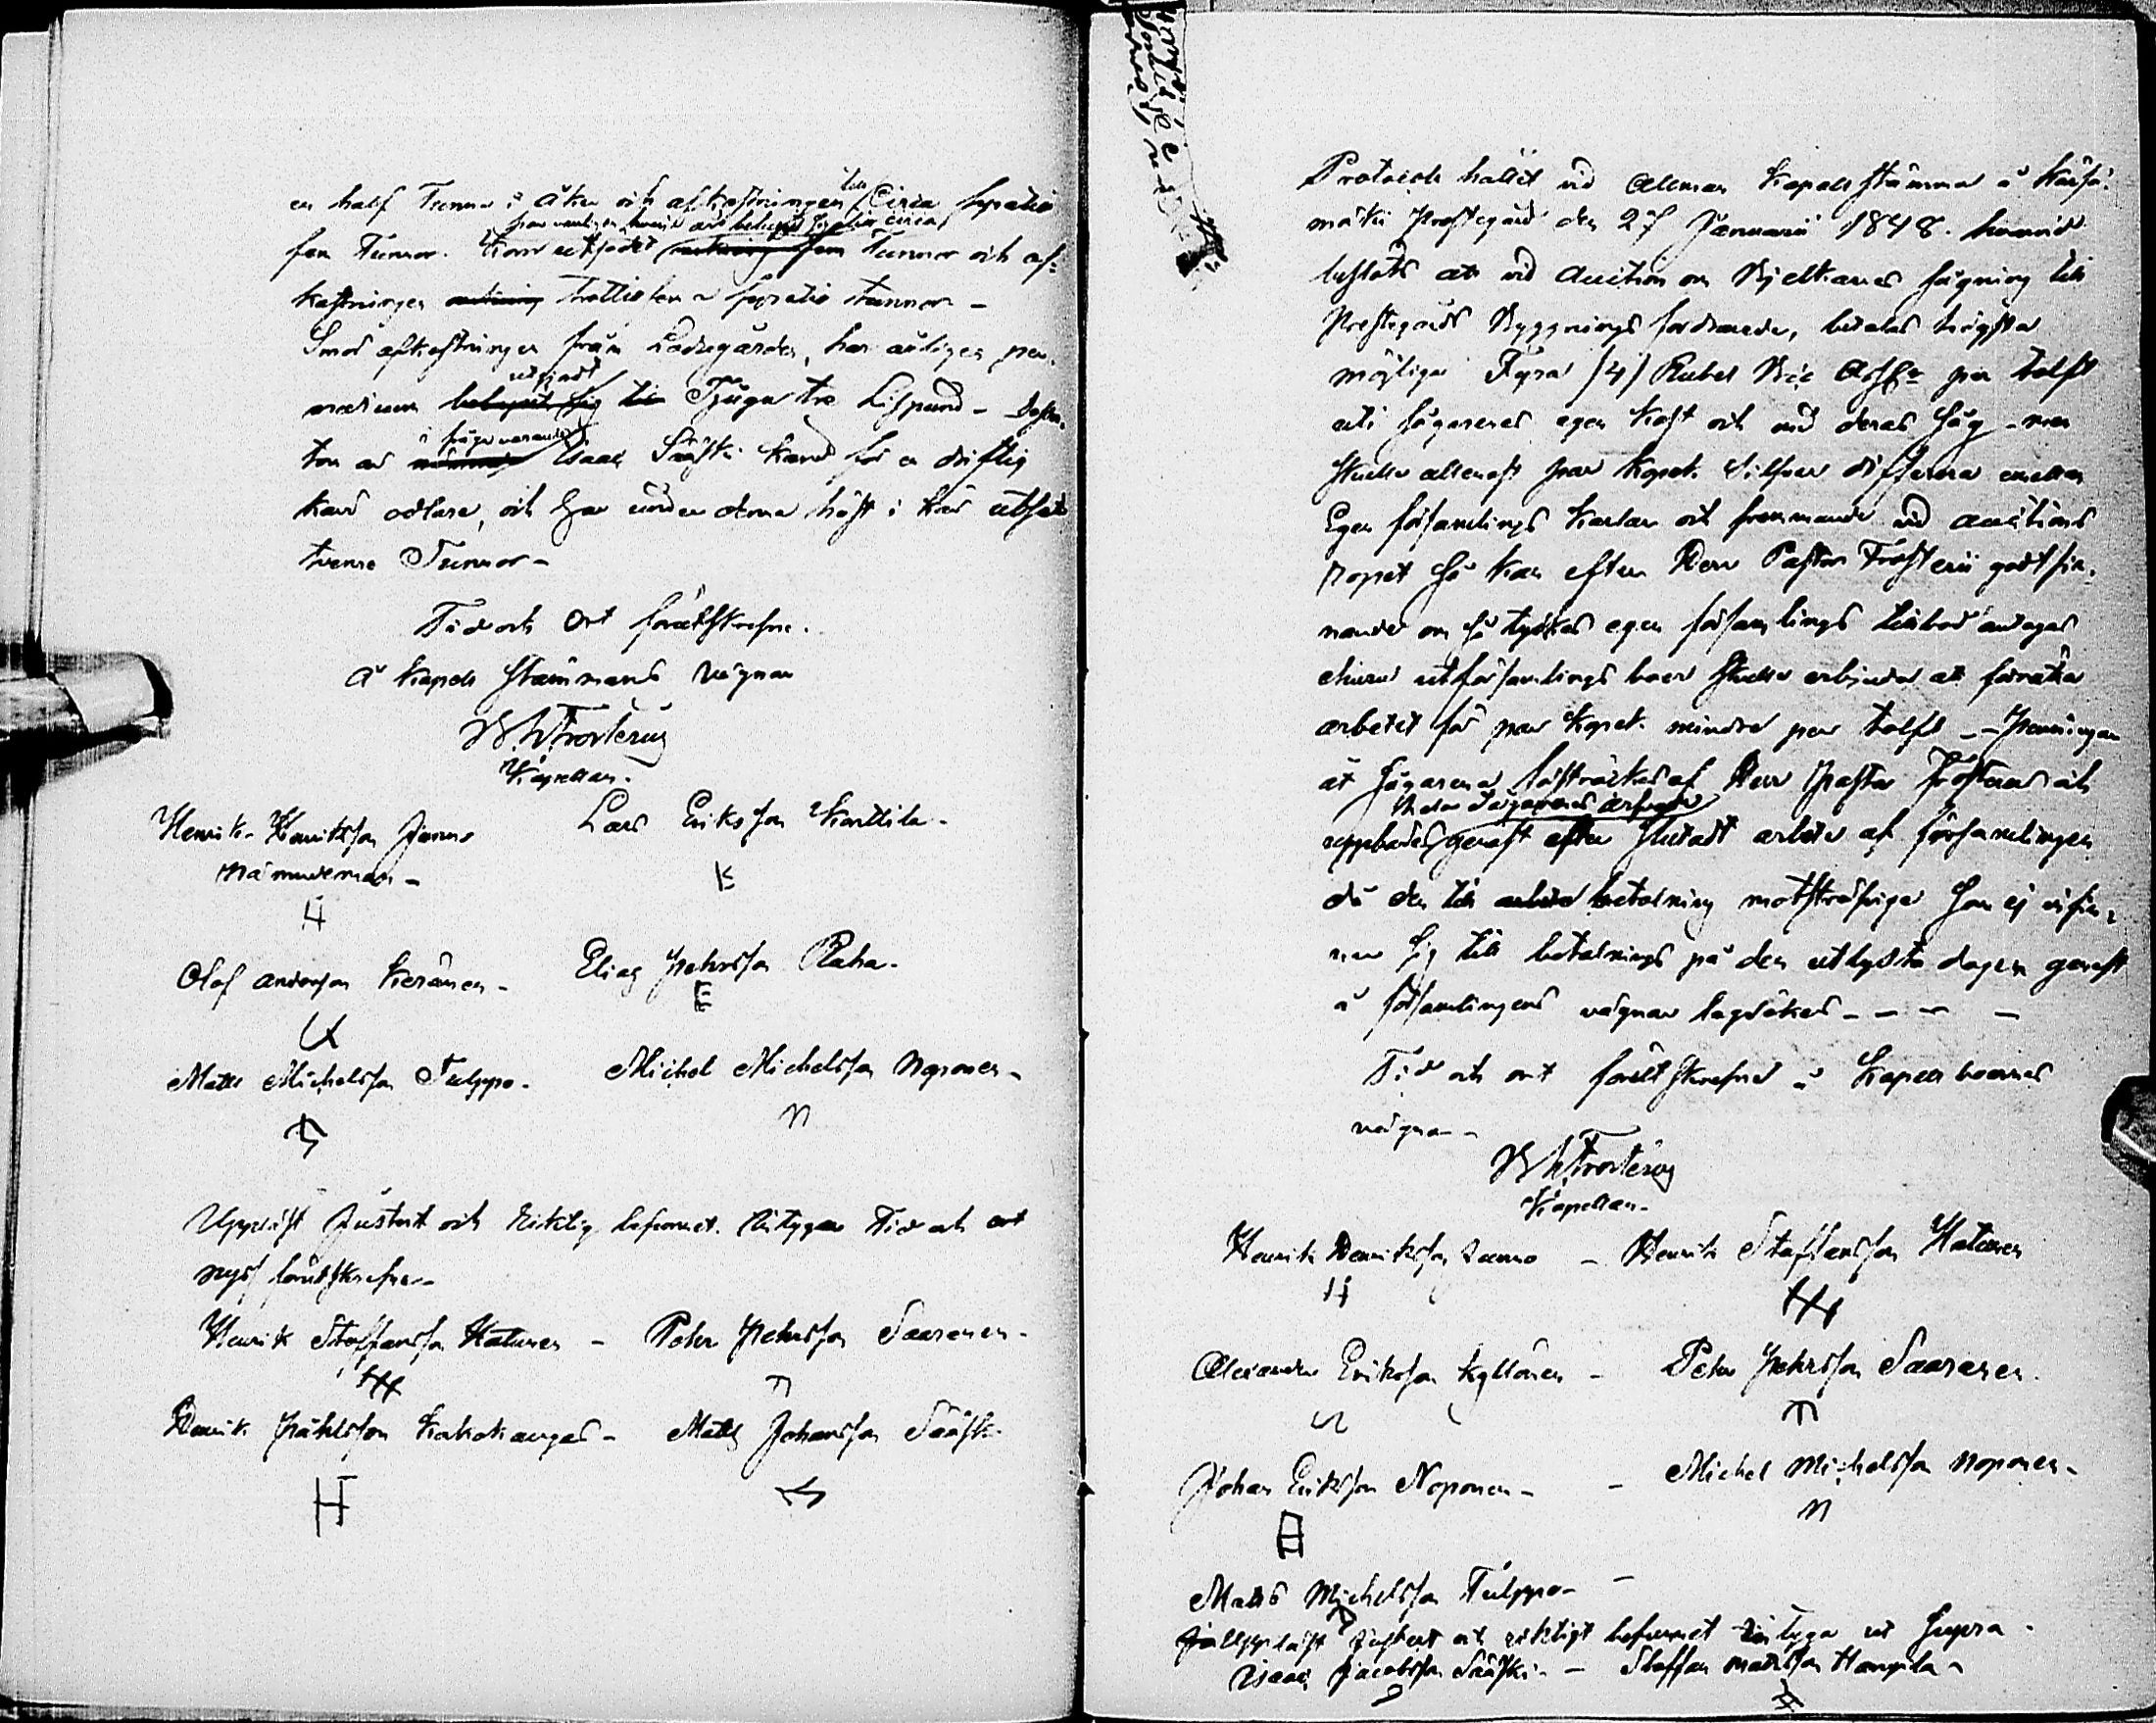 en half Tunna i åker och afkastningen till Circa fyratio
fem Tunnor. Korn utsädet Tunnor och af-
kastningen Trettiofem a fyratio tunnor -
Smör afkastningen från Ladugården, har årligen per
medium utgjort Tjugu tre Lispund -
ton av i fråga varande Isaac Sääski känd för en driftig
karl odlare, och har under denna höst i kär utsådt
trenne Tunnor -
Tid och Ort förutskrefne.
å Kapell Stämmans vägnar
Frosterus
Kapellan.
Henrik Henriksson Junno
Nämndeman -
Lars Eriksson Karttila -
Olof Andersson Keränen -
Elias Pehrsson Raha -
Matts Michelsson Tulppo -
Michel Michelsson Noponen -
Uppläst Justerat och Riktig befunnet. Intygar Tid och ort
nyss förutskrefne -
Henrik Staffansson Hatunen - Peter Pehrsson Saaranen -
Henrik Påhlsson Kokokangas - Matts Johansson Sääski
Protocoll hållit vid Allmän Kapell stämma i Kärsä-
mäki Prestegård den 27 Januarii 1848. hvarvid
beslöts att vid Auction om Bjelkarnes sågning till
Prestegårds Byggnings fordrande, betalas högsta
möjliga Fyra /4/ Rubel B:co Ass. per tolft
uti sågarenes egen kost och med deras såg - men
skulle allenast par Kopek Silfver differera emellan
Egen församlings karlar och främmande vid auctions
ropet så kan efter Herr Pastor Frosterii godtfin-
nande om så tyckes egen församlings tillbud antagas
churu utförsamlings boer skulle erbjuda att förrätta
arbetet för par Kopek mindre per tolft - - Penningar
åt sågarena försträckes af Herr Pastor Frosterus och
uppbäres genast efter slutadt arbete af församlingen
då den till betalning motsträfvige som ej infin-
ner sig till betalnings på den utlysta dagen genast
å församlingens vägnar lagsökes - - - -
Tid och ort förutskrefne å Kapell boernes
vägnar -
Frosterus
Kapellan -
Henrik Henriksson Junno - Henrik Staffansson Hatunen
Alexander Eriksson Kyllönen - Peter Pehrsson Saaranen.
Johan Eriksson Noponen - - Michel Michelsson Noponen -
Matts Michelsson Tulppo - -
Uppläst Justerat och riktigt befunnet intyga ut Supra -
Isaac Jacobsson Sääski - - Staffan Mattsson Hampila -